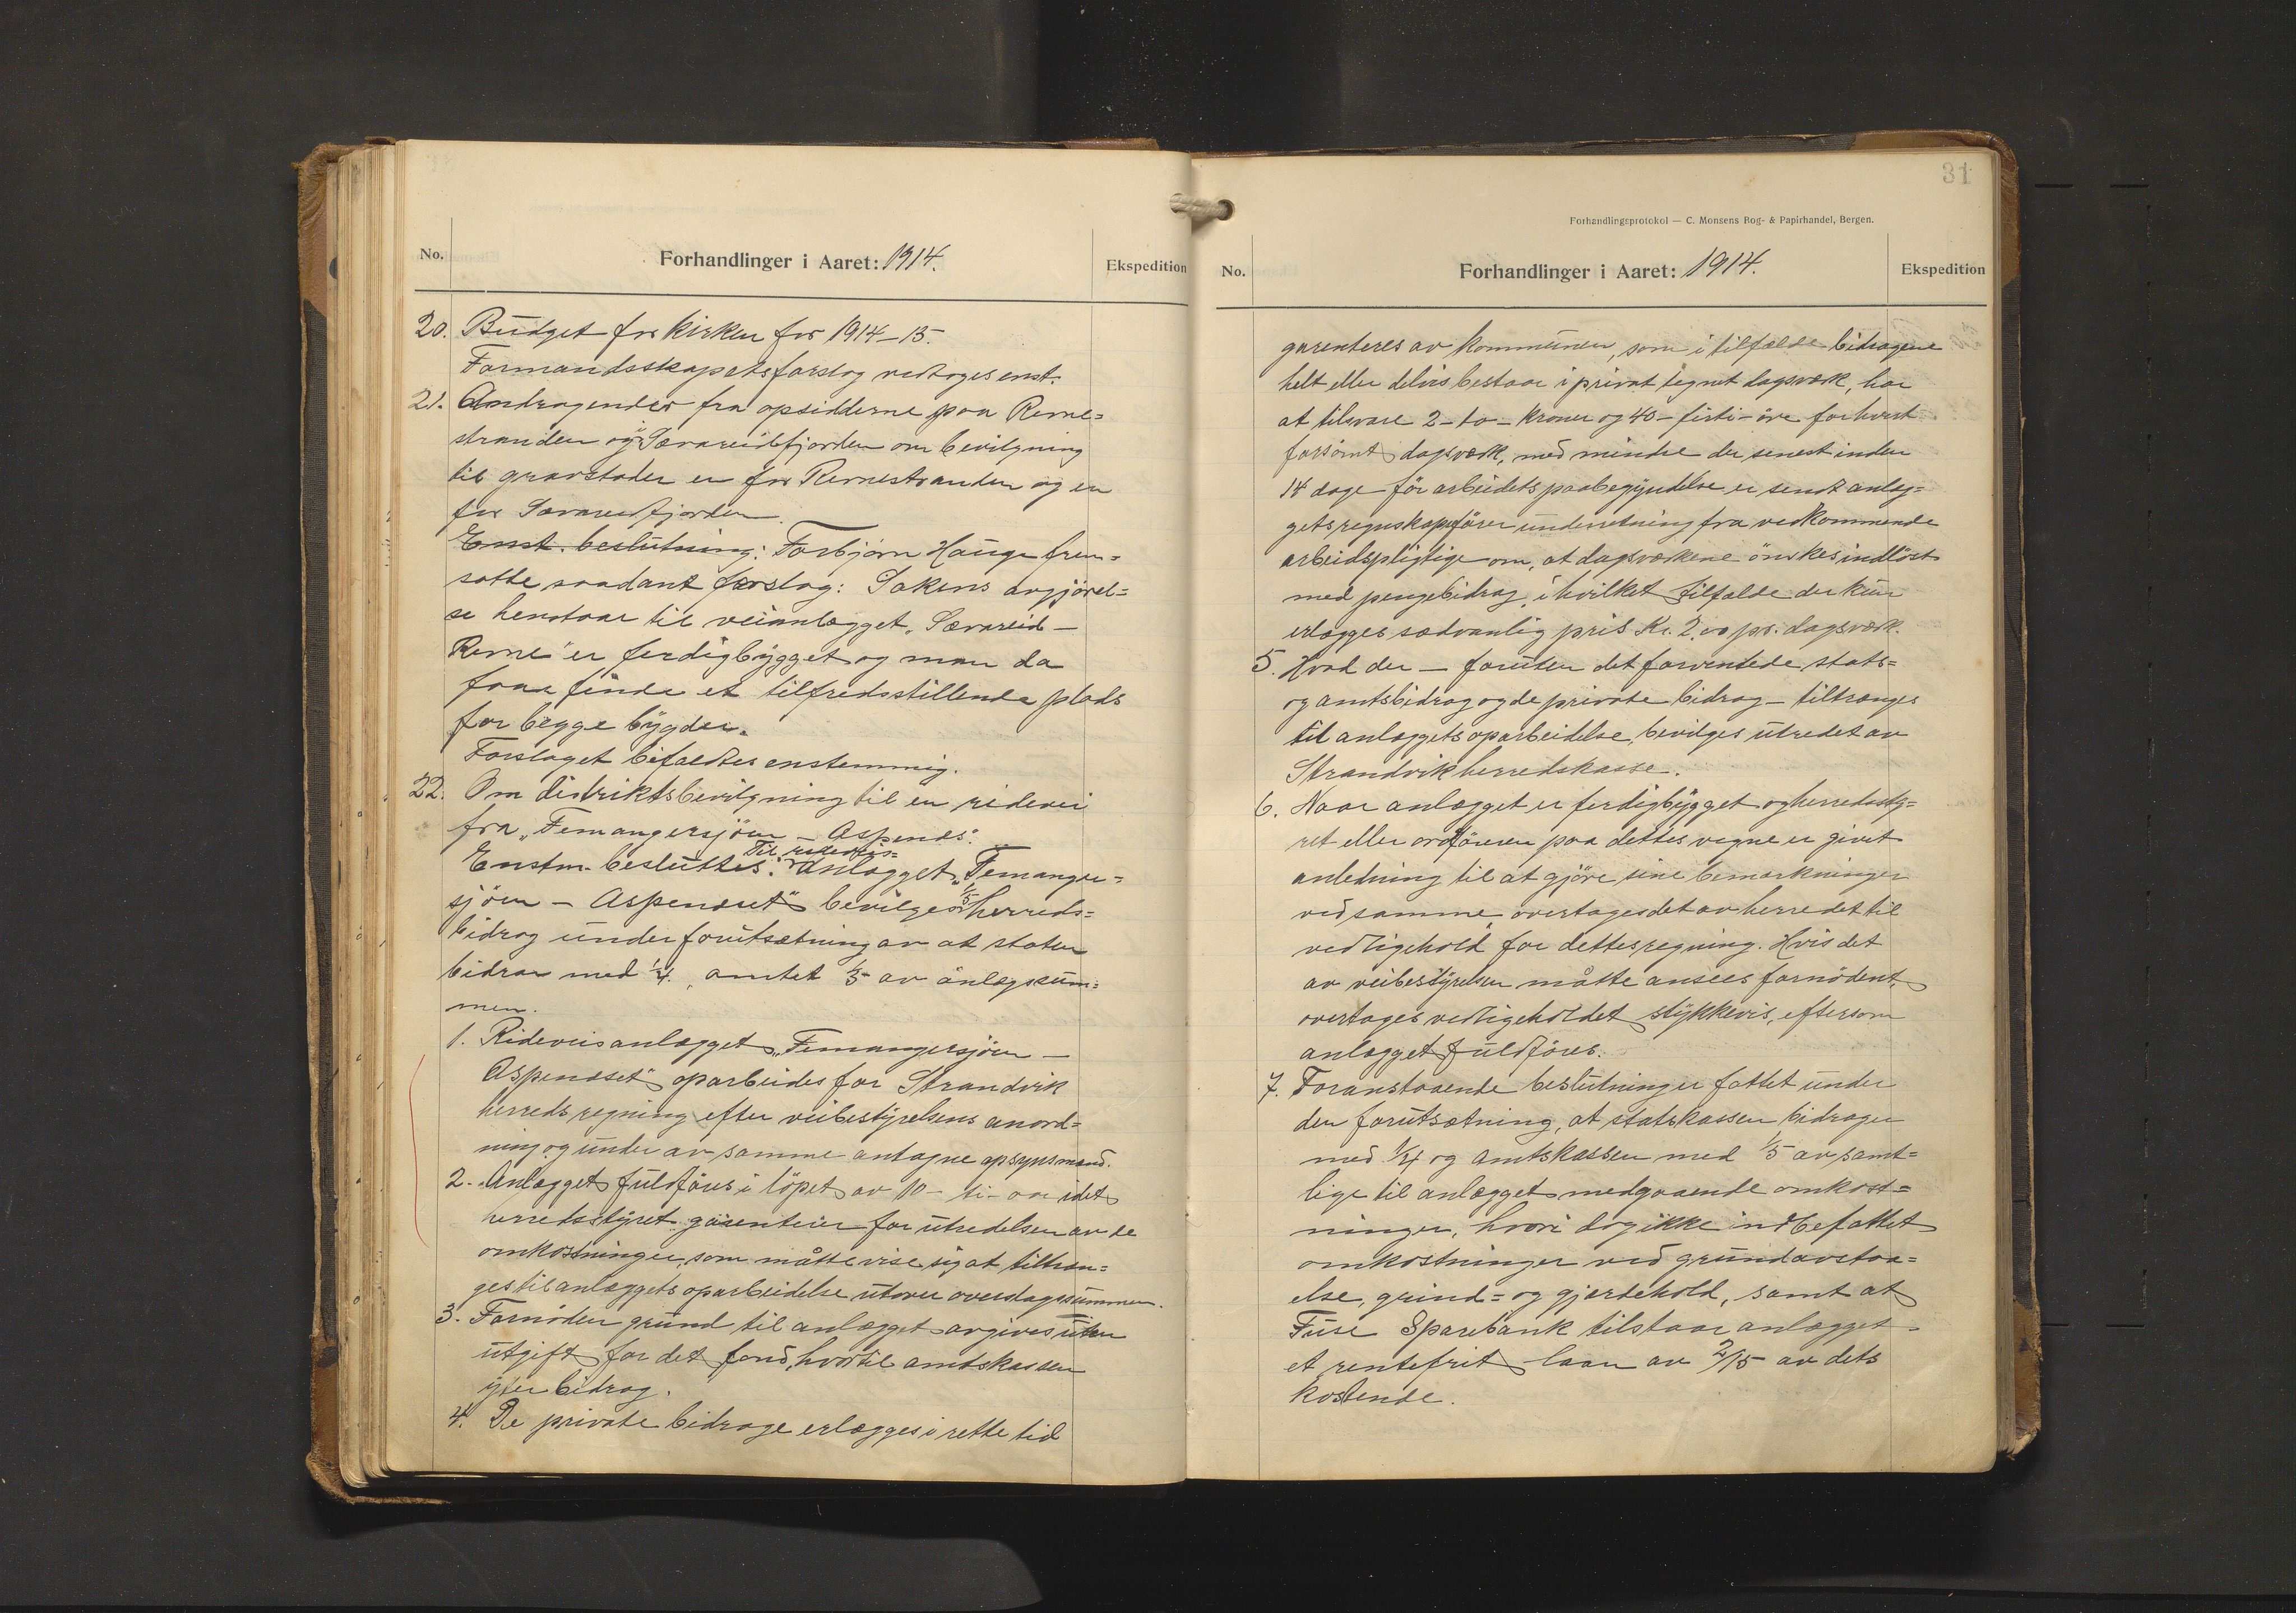 No.
Forhandlinger i Aaret: 1914.
Ekspedition
20. Budget for kirken for 1914–15.
Formandsskapets forslag vedtoges enst.
21. Andragender fra opsidderne paa Revne=
stranden og i Sævareidfjorden om bevilgning
til gravstader en for Revnestranden og en
for Sævareidfjorden.
Enst. beslutning: Torbjørn Hauge frem=
satte saadant forslag: Sakens avgjørel=
se henstaar til veianlægget „Sævareid –
Revne" er ferdigbygget og man da
faar finde et tilfredsstillende plads
for begge bygder.
Forslaget bifaldtes enstemmig.
22. Om distriktsbevilgning til en ridevei
fra „Femangersjøen – Aspenes".
Til rideveis=
Enstm. besluttes: Anlægget „Femanger=
sjøen – Aspenæset" bevilges 1/5 herreds=
bidrag under forutsætning av at staten
bidrar med 1/4, amtet 1/5 av anlægssum=
men.
1. Rideveisanlægget „Femangersjøen –
Aspenæset" oparbeides for Strandvik
herreds regning efter veibestyrelsens anord=
ning og under av samme antagne opsynsmænd.
2. Anlægget fuldføres i løpet av 10 – ti – aar idet
herredsstyret garenterer for utredelsen av de
omkostninger, som måtte vise sig at tiltræn=
ges til anlæggets oparbeidelse utover overslagssummen.
3. Fornøden grund til anlægget avgives uten
utgift for det fond, hvortil amtskassen
yter bidrag.
4. De private bidrage erlægges i rette tid
31
Forhandlingsprotokol — C. Monsens Bog- & Papirhandel, Bergen.
No.
Forhandlinger i Aaret: 1914.
Ekspedition
garenteres av kommunen, som i tilfælde bidragene
helt eller delvis bestaar i privat tegnet dagsverk, har
at tilsvare 2 – to – kroner og 40 – firti – øre for hvert
forsømt dagsverk, med mindre der senest inden
14 dage før arbeidets paabegyndelse er sendt anlæg=
gets regnskapsfører underretning fra vedkommende
arbeidspligtige om, at dagsverkene ønskes indløst
med pengebidrag, i hvilket tilfælde der kun
erlægges sedvanlig pris Kr. 2,00 pr. dagsverk.
5. Hvad der – foruten det forventede stats=
og amtsbidrag og de private bidrag – tiltrænges
til anlæggets oparbeidelse, bevilges utredet av
Strandvik herredskasse.
6. Naar anlægget er ferdigbygget og herredssty=
ret eller ordføreren paa dettes vegne er givet
anledning til at gjøre sine bemerkninger
ved samme overtages det av herredet til
vedligehold for dettes regning. Hvis det
av veibestyrelsen måtte ansees fornødent,
overtages vedligeholdet stykkevis, eftersom
anlægget fuldføres.
7. Foranstaaende beslutninger fattet under
den forutsætning, at statskassen bidrager
med 1/4 og amtskassen med 1/5 av samt=
lige til anlægget medgaaende omkost=
ninger, hvori dog ikke indbefattet
omkostninger ved grundavstaa=
else, grind= og gjerdehold, samt at
Fuse Sparebank tilstaar anlægget
et rentefrit laan av 2/15 av dets
kostende.